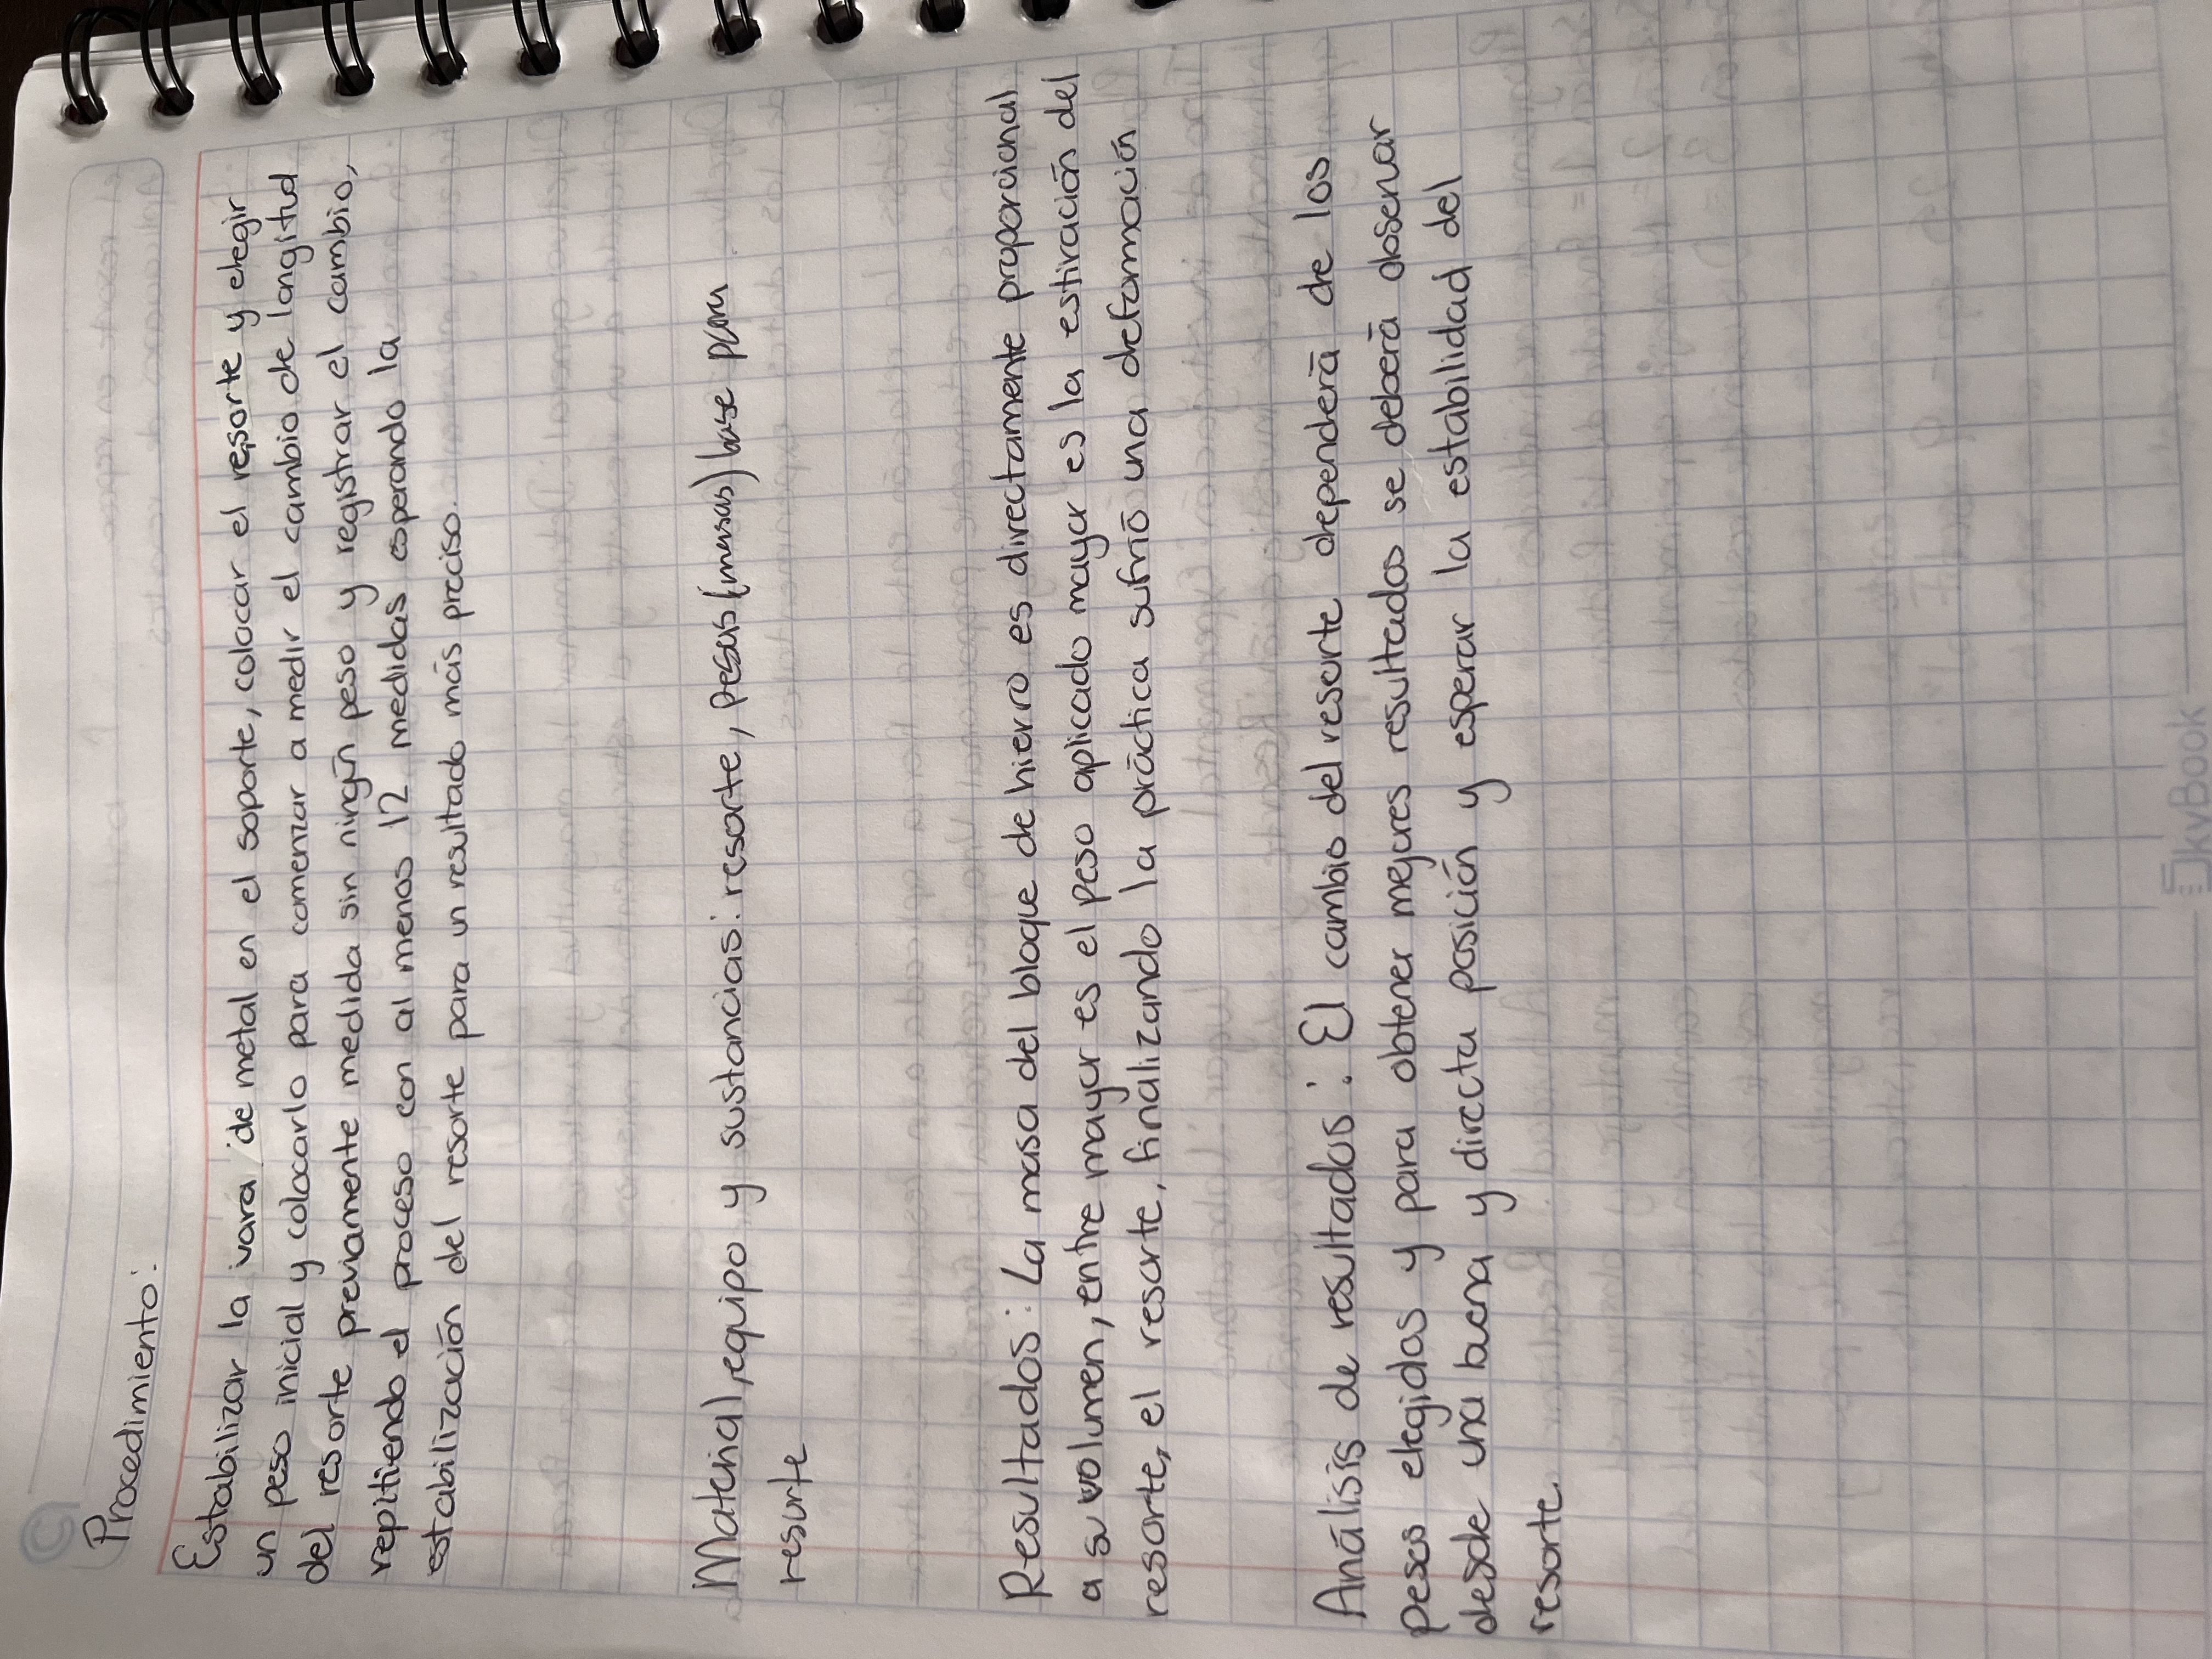 Procedimiento:
Estabilizar la vara de metal en el soporte, colocar el resorte y elegir
un peso inicial y colocarlo para comenzar a medir el cambio de longitud
del resorte previamente medida sin ningún peso y registrar el cambio,
repitiendo el proceso con al menos 12 medidas esperando la
estabilización del resorte para un resultado más preciso.
Material, equipo y sustancias: resorte, pesas (masas) base para
resorte
Resultados: La masa del bloque de hierro es directamente proporcional
a su volumen, entre mayor es el peso aplicado mayor es la estiración del
resorte, el resorte, finalizando la práctica sufrió una deformación
Análisis de resultados: El cambio del resorte dependerá de los
pesos elegidos y para obtener mejores resultados se deberá observar
desde una buena y directa posición y esperar la estabilidad del
resorte.
SkyBook